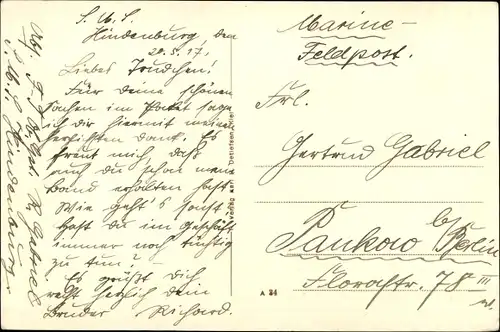 S. M. S.
Hindenburg, den
20.5.17.
Liebes Trudchen!
Für deine schönen
Sachen im Paket sage
ich dir hiermit meinen
herzlichsten Dank. Es
freut mich, daß
auch du schon mein
Band erhalten hast.
Wie geht's sonst
Hast du im Geschäft
immer noch tüchtig
zu tun? –
Es grüßt dich
recht herzlich dein
Bruder Richard.
R. Gabriel
S. M. S. Hindenburg.
A 34
Marine-
Feldpost.
Frl.
Gertrud Gabriel
Pankow b/Berlin
Florastr. 78 III